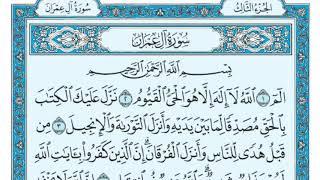 سُورَةُ آلِ عِمْرَان
الجُزْءُ الثَّالِثُ
سُورَةُ آلِ عِمْرَان
بِسْمِ اللَّهِ الرَّحْمَٰنِ الرَّحِيمِ
الٓمٓ ١ ٱللَّهُ لَآ إِلَٰهَ إِلَّا هُوَ ٱلْحَىُّ ٱلْقَيُّومُ ٢ نَزَّلَ عَلَيْكَ ٱلْكِتَٰبَ
بِٱلْحَقِّ مُصَدِّقًا لِّمَا بَيْنَ يَدَيْهِ وَأَنزَلَ ٱلتَّوْرَىٰةَ وَٱلْإِنجِيلَ ٣ مِن
قَبْلُ هُدًى لِّلنَّاسِ وَأَنزَلَ ٱلْفُرْقَانَ إِنَّ ٱلَّذِينَ كَفَرُوا۟ بِـَٔايَٰتِ ٱللَّهِ